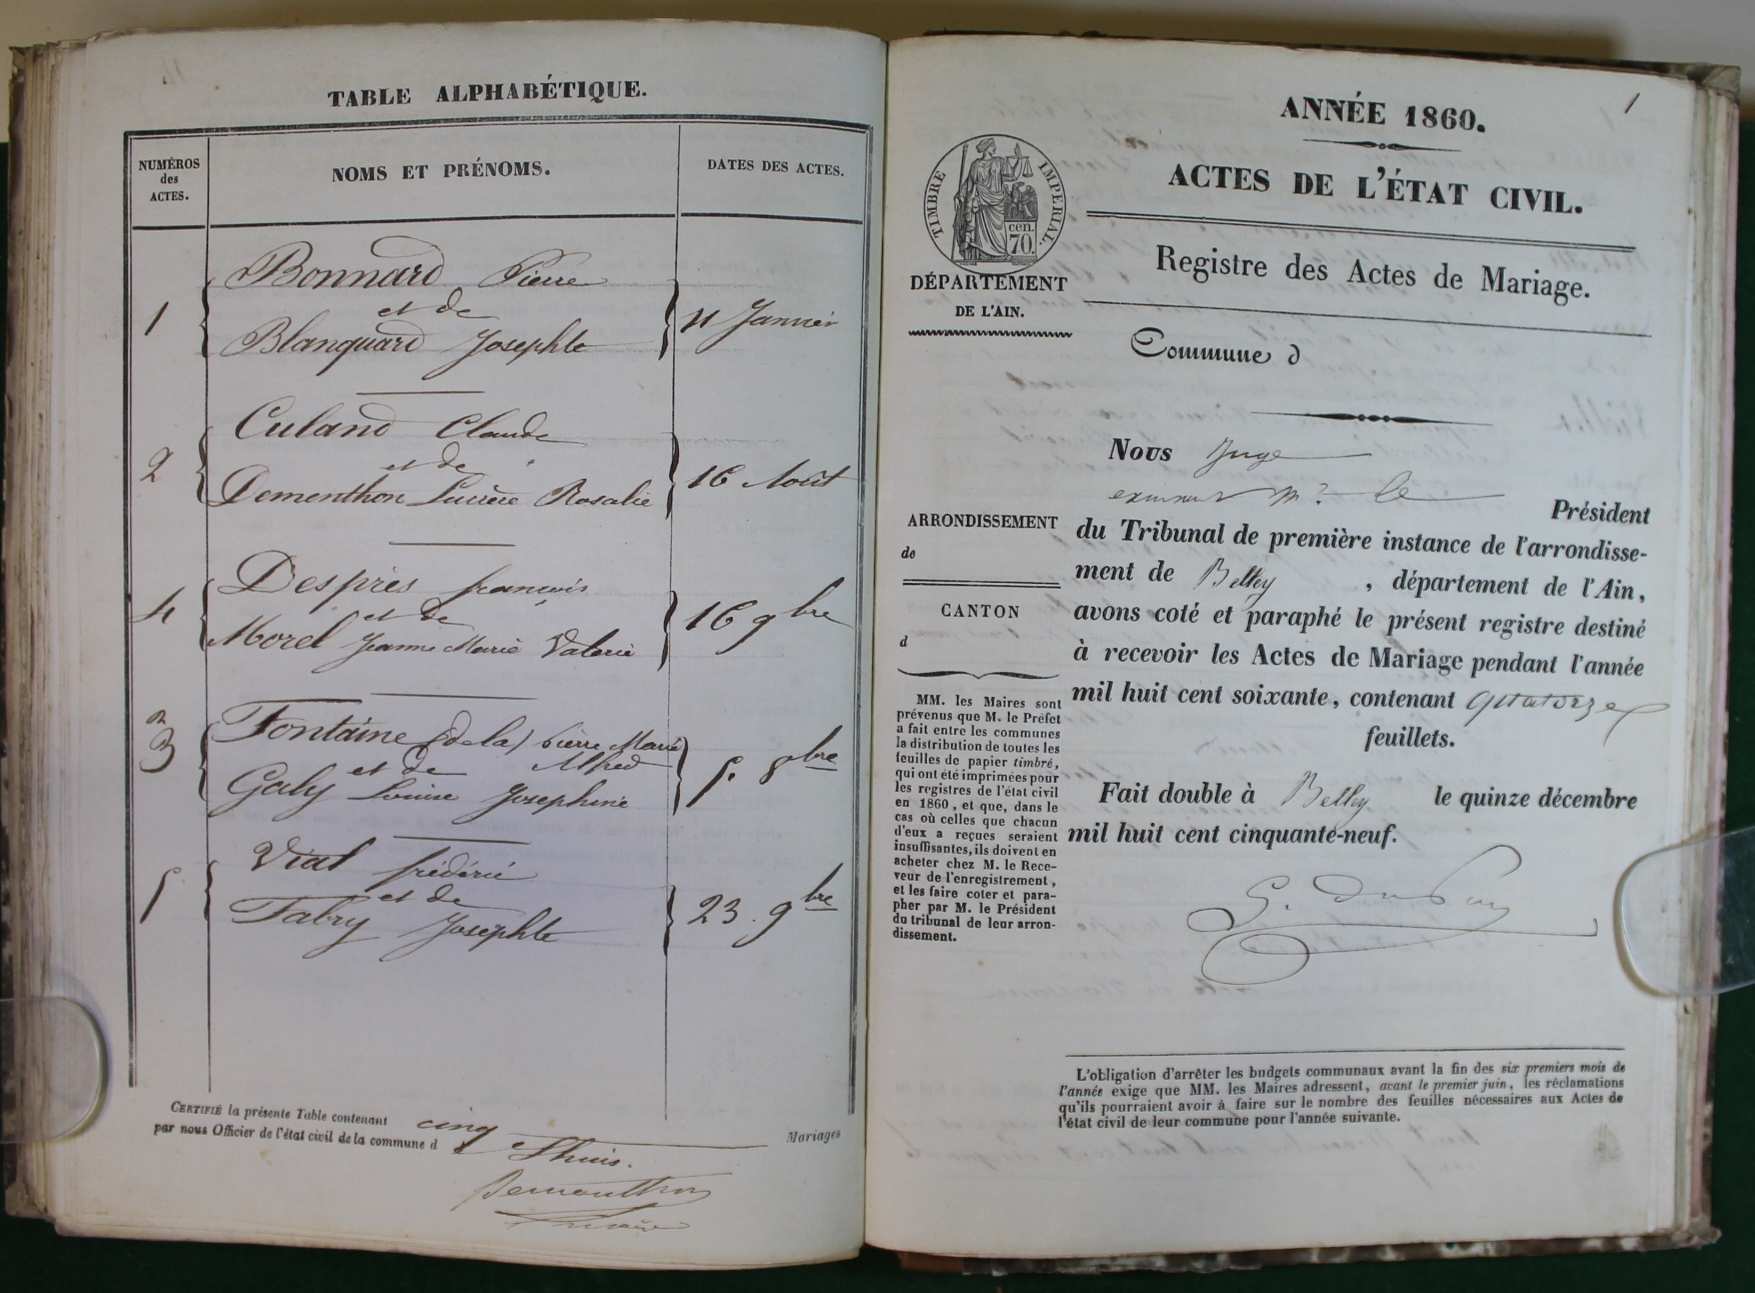 TABLE ALPHABÉTIQUE.
NUMÉROS des ACTES.
NOMS ET PRÉNOMS.
DATES DES ACTES.
Bonnard Pierre
et de
1 Blanquard Josephte 11 Janvier
Culand Claude
et de
2 Dementhon Lucrèce Rosalie 16 Août
Desprès françois
et de
4 Morel Jeanne Marie Valerie 16 9bre
Fontaine (de la) Pierre Marie
et de Alfred
3 Galy Louise Josephine 5. 8bre
Vial frédéric
et de
5 Fabry Josephte 23. 9bre
CERTIFIÉ la présente Table contenant cinq Mariages
par nous Officier de l'état civil de la commune d
1
ANNÉE 1860.
ACTES DE L'ÉTAT CIVIL.
Registre des Actes de Mariage.
TIMBRE IMPERIAL.
cen.
70.
DÉPARTEMENT
DE L'AIN.
Commune d
ARRONDISSEMENT
de
CANTON
d
MM. les Maires sont
prévenus que M. le Préfet
a fait entre les communes
la distribution de toutes les
feuilles de papier timbré,
qui ont été imprimées pour
les registres de l'état civil
en 1860, et que, dans le
cas où celles que chacun
d'eux a reçues seraient
insuffisantes, ils doivent en
acheter chez M. le Rece-
veur de l'enregistrement,
et les faire coter et para-
pher par M. le Président
du tribunal de leur arron-
dissement.
Nous Juge
le
Président
du Tribunal de première instance de l'arrondisse-
ment de Belley, département de l'Ain,
avons coté et paraphé le présent registre destiné
à recevoir les Actes de Mariage pendant l'année
mil huit cent soixante, contenant quatorze
feuillets.
Fait double à Belley le quinze décembre
mil huit cent cinquante-neuf.
L'obligation d'arrêter les budgets communaux avant la fin des six premiers mois de
l'année exige que MM. les Maires adressent, avant le premier juin, les réclamations
qu'ils pourraient avoir à faire sur le nombre des feuilles nécessaires aux Actes de
l'état civil de leur commune pour l'année suivante.